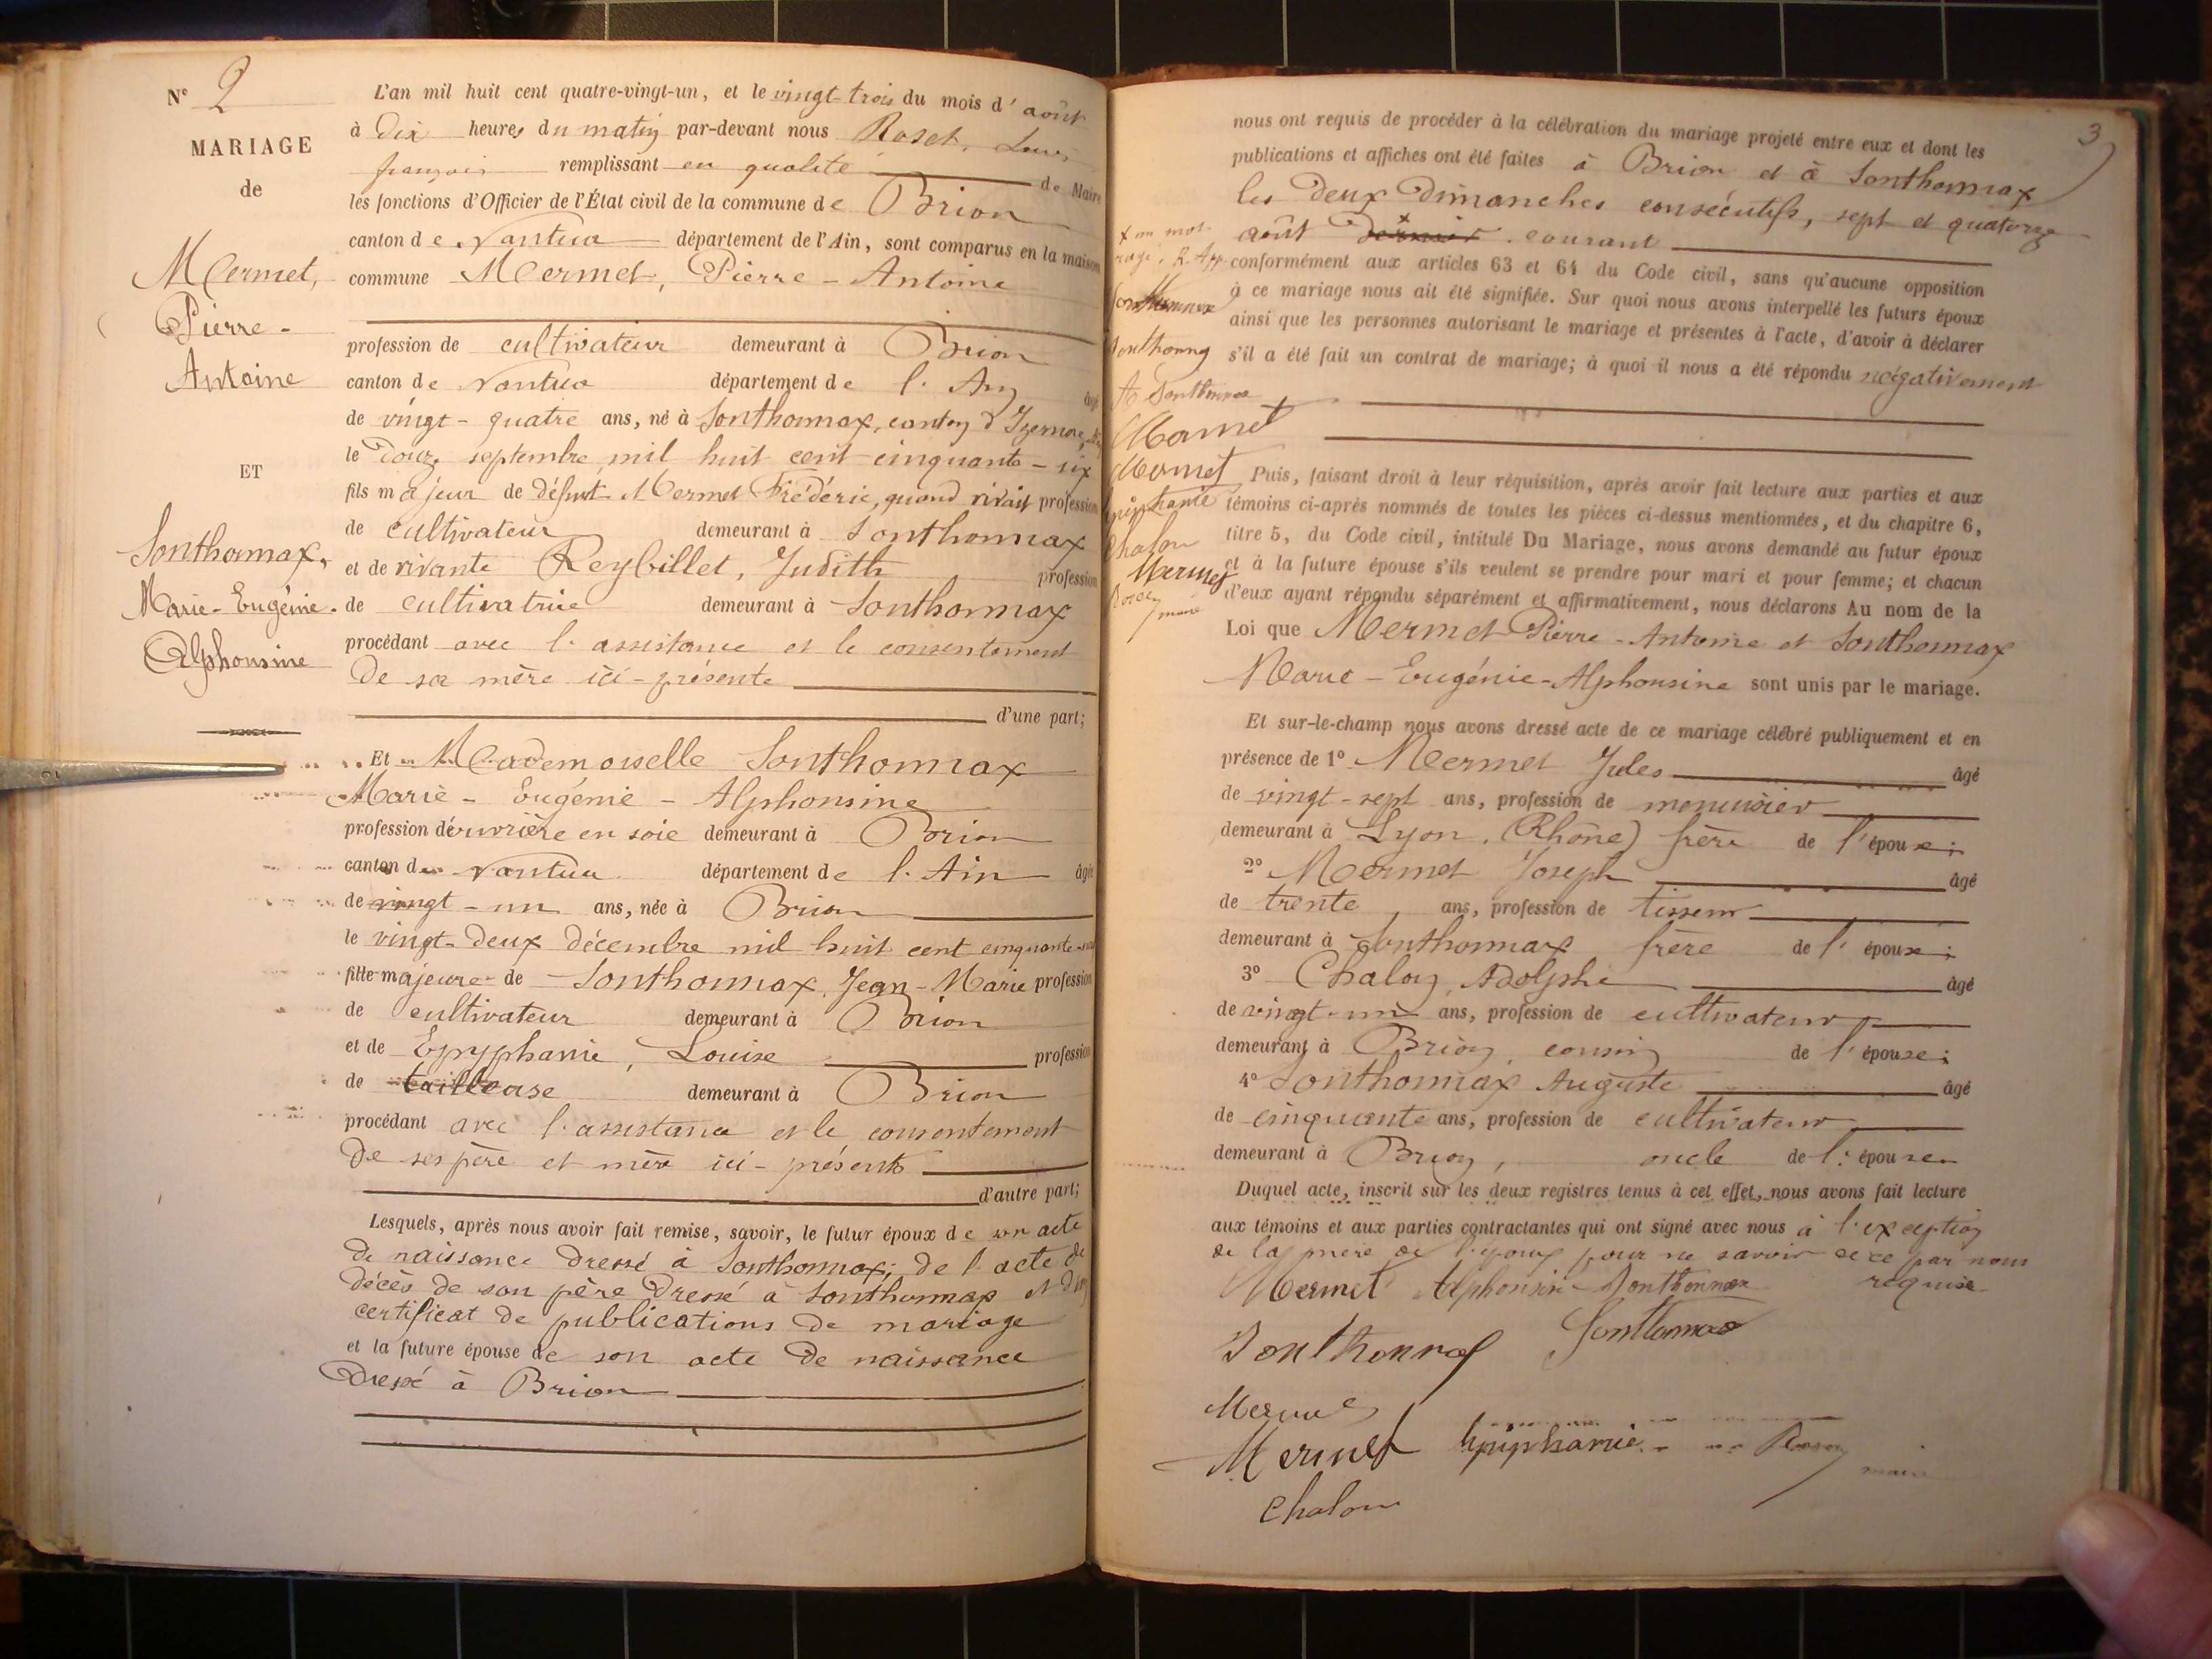 N° 2
MARIAGE
de
Mermet,
Pierre-
Antoine
ET
Sonthonnax,
Marie-Eugénie-
Alphonsine
L'an mil huit cent quatre-vingt-un, et le vingt-trois du mois d'août
à Dix heures du matin par-devant nous Roset, Louis
françois remplissant en qualité de Maire
les fonctions d'Officier de l'État civil de la commune de Brion
canton de Nantua département de l'Ain, sont comparus en la maison
commune Mermet, Pierre-Antoine
profession de cultivateur demeurant à Brion
canton de Nantua département de l'Ain âgé
de vingt-quatre ans, né à Sonthonnax, canton d'Izernore,
le Douze septembre mil huit cent cinquante-six
fils majeur de Défunt Mermet Frédéric, quand vivait profession
de cultivateur demeurant à Sonthonnax
et de vivante Reybillet, Judith profession
de cultivatrice demeurant à Sonthonnax
procédant avec l'assistance et le consentement
De sa mère ici-présente
d'une part;
Et Mademoiselle Sonthonnax
Marie-Eugénie-Alphonsine
profession d'ouvrière en soie demeurant à Brion
canton de Nantua département de l'Ain âgée
de vingt-un ans, née à Brion
le vingt-Deux Décembre mil huit cent cinquante-neuf
fille majeure de Sonthonnax, Jean-Marie profession
de cultivateur demeurant à Brion
et de Epyphanie, Louise profession
de tailleuse demeurant à Brion
procédant avec l'assistance et le consentement
De ses père et mère ici-présents
d'autre part;
Lesquels, après nous avoir fait remise, savoir, le futur époux de son acte
De naissance Dressé à Sonthonnax; De l'acte de
Décès de son père Dressé à Sonthonnax et d'un
certificat De publications De mariage
et la future épouse de son acte De naissance
Dressé à Brion
3
nous ont requis de procéder à la célébration du mariage projeté entre eux et dont les
publications et affiches ont été faites à Brion et à Sonthonnax
les Deux Dimanches consécutifs, sept et quatorze
août Dernier courant
conformément aux articles 63 et 64 du Code civil, sans qu'aucune opposition
à ce mariage nous ait été signifiée. Sur quoi nous avons interpellé les futurs époux
ainsi que les personnes autorisant le mariage et présentes à l'acte, d'avoir à déclarer
s'il a été fait un contrat de mariage; à quoi il nous a été répondu négativement
x un mot
rayé, R. App.
Sonthonnax
Sonthonnax
A Sonthonnax
Mermet
Mermet
Epiphanie
Chalon
Mermet
Roset
maire
Puis, faisant droit à leur réquisition, après avoir fait lecture aux parties et aux
témoins ci-après nommés de toutes les pièces ci-dessus mentionnées, et du chapitre 6,
titre 5, du Code civil, intitulé Du Mariage, nous avons demandé au futur époux
et à la future épouse s'ils veulent se prendre pour mari et pour femme; et chacun
d'eux ayant répondu séparément et affirmativement, nous déclarons Au nom de la
Loi que Mermet Pierre-Antoine et Sonthonnax
Marie-Eugénie-Alphonsine sont unis par le mariage.
Et sur-le-champ nous avons dressé acte de ce mariage célébré publiquement et en
présence de 1° Mermet Jules âgé
de vingt-sept ans, profession de menuisier
demeurant à Lyon, (Rhône) frère de l'époux;
2° Mermet Joseph âgé
de trente ans, profession de tisseur
demeurant à Sonthonnax frère de l'époux;
3° Chalon, Adolphe âgé
de vingt-un ans, profession de cultivateur
demeurant à Brion, cousin de l'épouse;
4° Sonthonnax Auguste âgé
de cinquante ans, profession de cultivateur
demeurant à Brion, oncle de l'épouse
Duquel acte, inscrit sur les deux registres tenus à cet effet, nous avons fait lecture
aux témoins et aux parties contractantes qui ont signé avec nous à l'exception
de la mère de l'époux pour ne savoir de ce par nous
requise
Mermet Alphonsine Sonthonnax
Sonthonnax Sonthonnax
Mermet
Mermet Epiphanie Roset
maire
Chalon